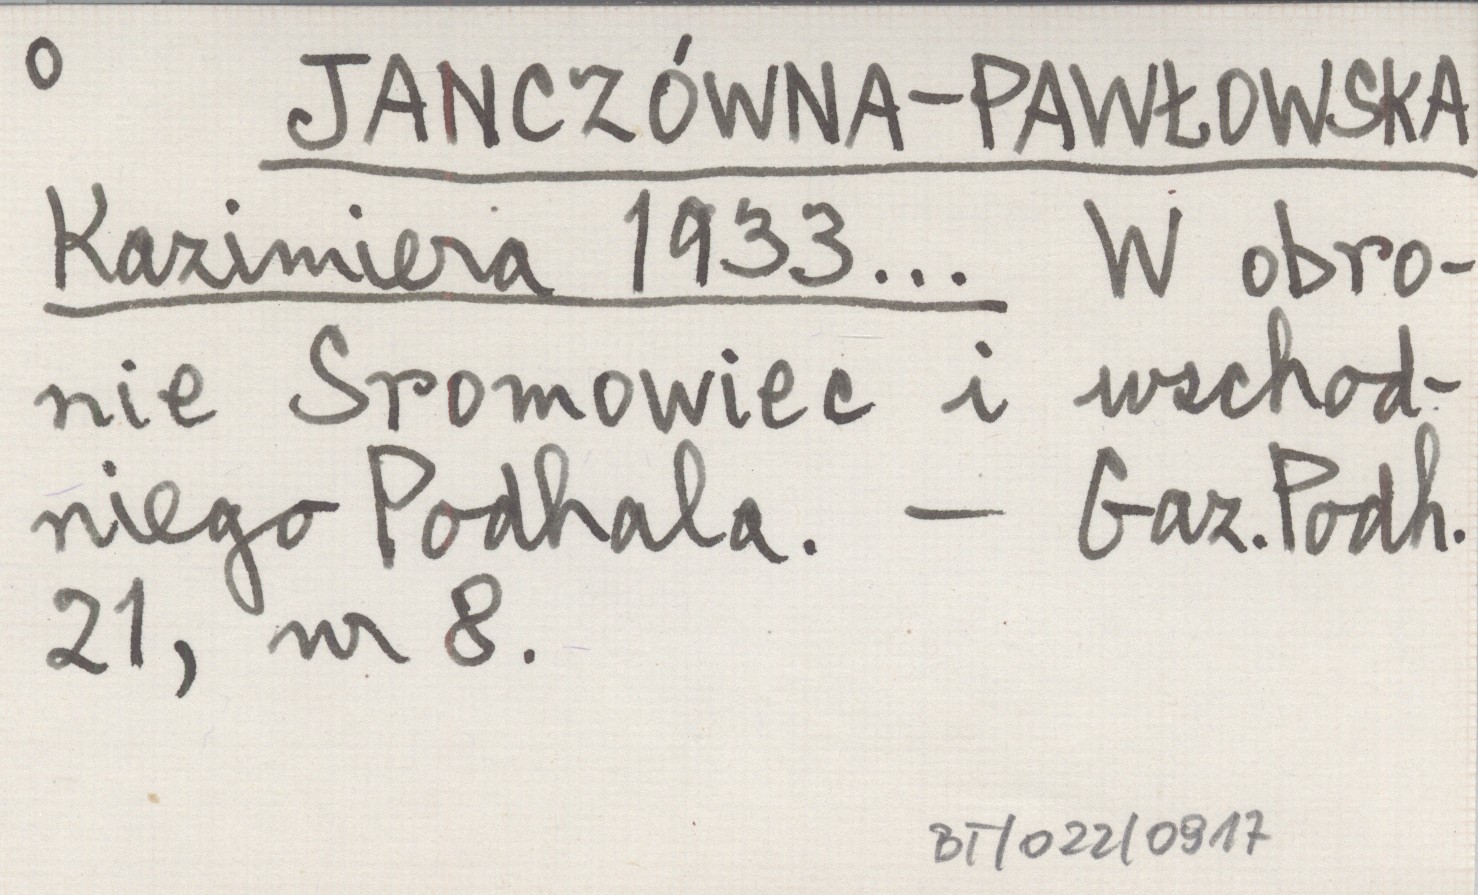 o JANCZÓWNA-PAWŁOWSKA
Kazimiera 1933... W obro-
nie Sromowiec i wschod-
niego Podhala. — Gaz. Podh.
21, nr 8.
BT/022/0917